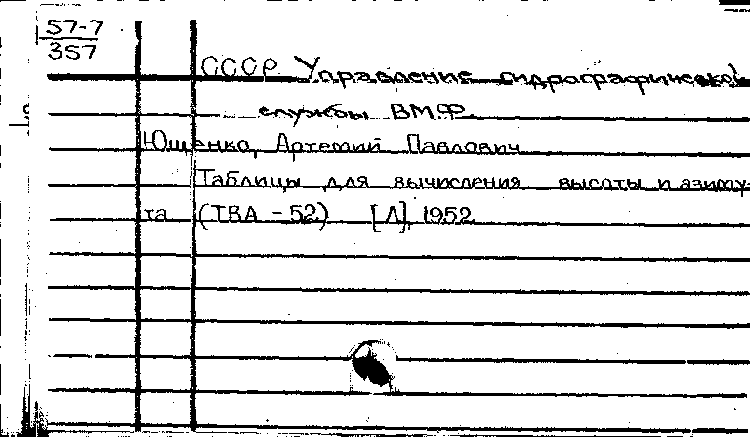 57-7
357
СССР Управление гидрографической
службы ВМФ.
Ющенко, Артемий Павлович
Таблицы для вычисления высоты и азиму-
та (ТВА - 52) [Л], 1952